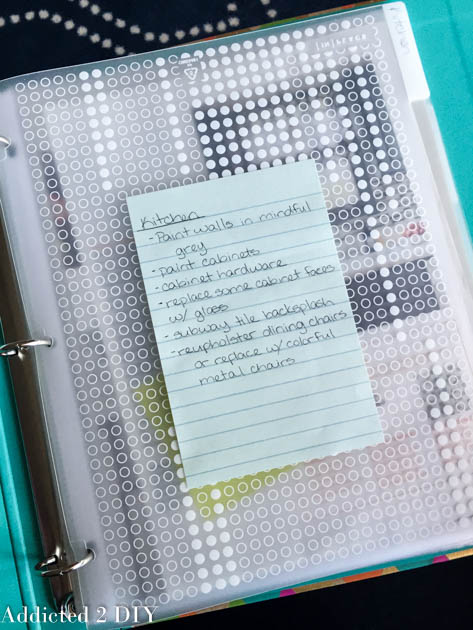 [in]place
Kitchen
Kitchen
-Paint walls in mindful
grey
-paint cabinets
-cabinet hardware
-replace some cabinet faces
w/ glass
-subway tile backsplash
-reupholster dining chairs
or replace w/ colorful
metal chairs
Addicted 2 DIY